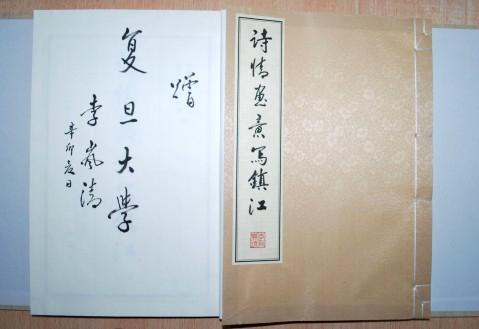 诗情画意写鎮江
赠
复旦大学
李岚清
辛卯夏日